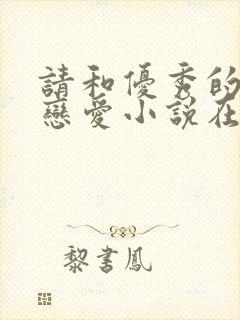 請和優秀的
戀愛小說在
黎書鳳